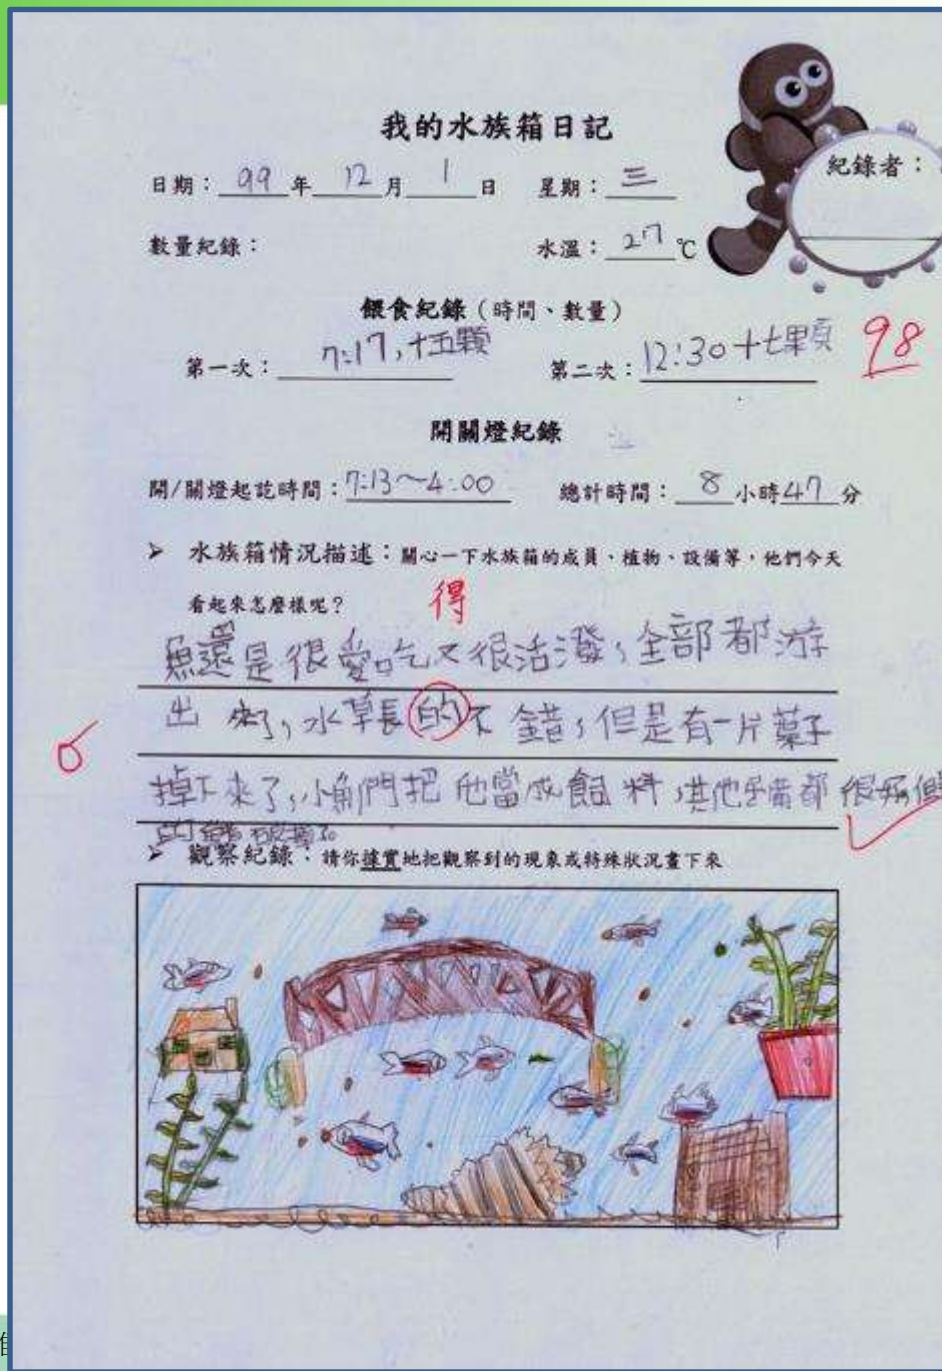 我的水族箱日記
紀錄者：
日期：99年12月1日 星期：三
數量紀錄： 水溫：27℃
餵食紀錄（時間、數量）
98
第一次：7:17,十五顆 第二次：12:30十七顆
開關燈紀錄
開/關燈起訖時間：7:13～4:00 總計時間：8小時47分
➤ 水族箱情況描述：關心一下水族箱的成員、植物、設備等，他們今天
看起來怎麼樣呢？
得
魚還是很愛吃又很活潑，全部都游
出來了，水草長的不錯，但是有一片葉子
掉下來了，小魚們把他當成飼料，其他設備都很好但
➤ 觀察紀錄：請你據實地把觀察到的現象或特殊狀況畫下來